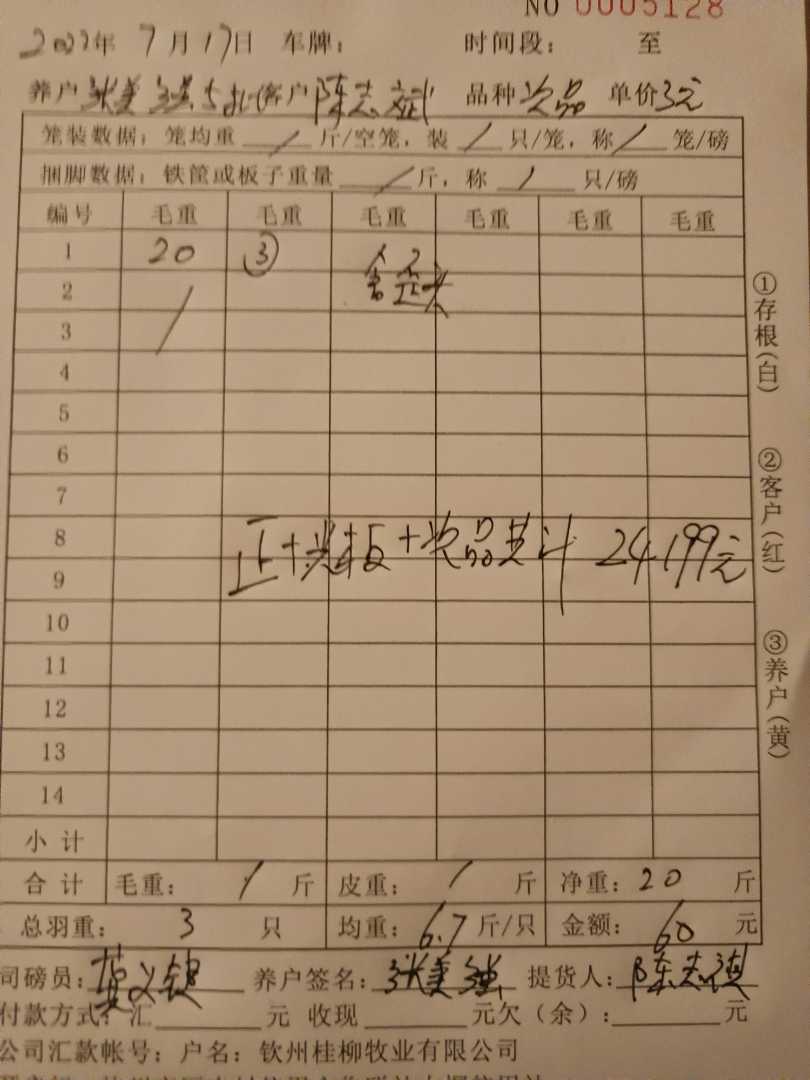 NO 0005128
2022年 7月17日 车牌： 时间段： 至
养户 张美强 客户 陈志斌 品种 次品 单价 3元
笼装数据：笼均重 / 斤/空笼，装 / 只/笼，称 / 笼/磅
捆脚数据：铁筐或板子重量 / 斤，称 / 只/磅
编号 毛重 毛重 毛重 毛重 毛重 毛重
1 20 ③
2 /
3
4
5
6
7
8
正+光板+次品共计 24199元
9
10
11
12
13
14
小计
合计 毛重： / 斤 皮重： / 斤 净重：20 斤
总羽重： 3 只 均重：6.7 斤/只 金额：60 元
司磅员： 养户签名：张美强 提货人：陈志斌
付款方式：汇 元 收现 元欠（余）： 元
公司汇款帐号：户名：钦州桂柳牧业有限公司
①存根（白）
②客户（红）
③养户（黄）